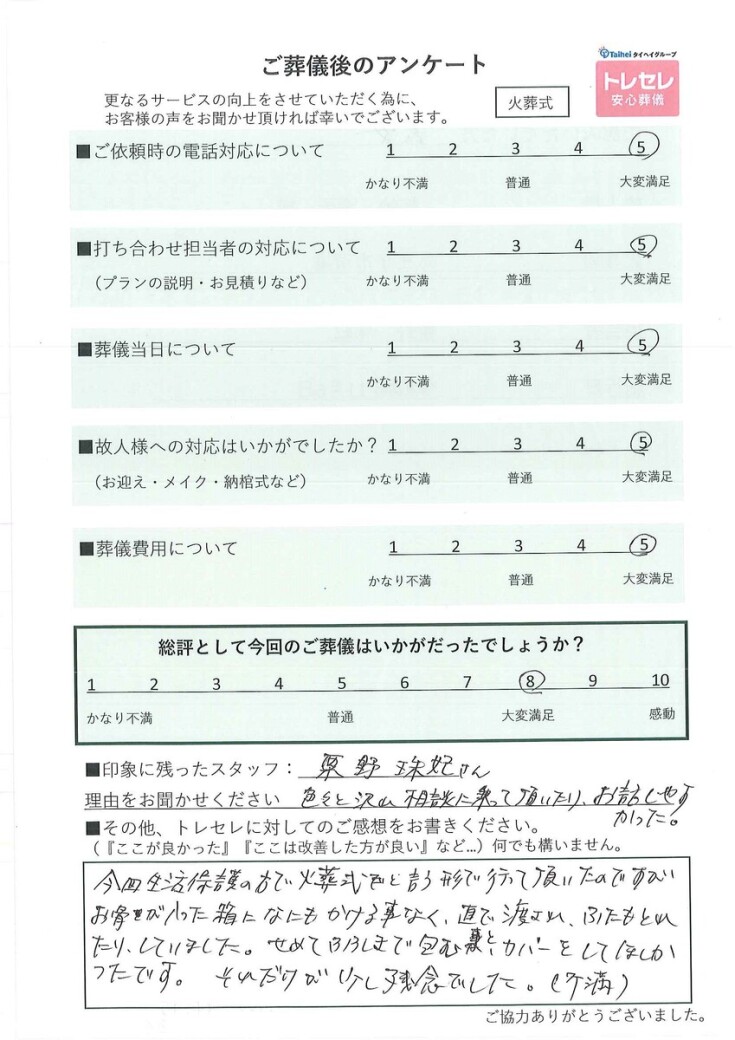 ご葬儀後のアンケート
Taihei タイヘイグループ
トレセレ
安心葬儀
更なるサービスの向上をさせていただく為に、
お客様の声をお聞かせ頂ければ幸いでございます。
火葬式
■ご依頼時の電話対応について 1 2 3 4 5
かなり不満 普通 大変満足
■打ち合わせ担当者の対応について 1 2 3 4 5
（プランの説明・お見積りなど） かなり不満 普通 大変満足
■葬儀当日について 1 2 3 4 5
かなり不満 普通 大変満足
■故人様への対応はいかがでしたか？ 1 2 3 4 5
（お迎え・メイク・納棺式など） かなり不満 普通 大変満足
■葬儀費用について 1 2 3 4 5
かなり不満 普通 大変満足
総評として今回のご葬儀はいかがだったでしょうか？
1 2 3 4 5 6 7 8 9 10
かなり不満 普通 大変満足 感動
■印象に残ったスタッフ： 粟野 珠妃さん
理由をお聞かせください 色々と沢山相談に乗って頂いたり、お話しやす
かった。
■その他、トレセレに対してのご感想をお書きください。
（『ここが良かった』『ここは改善した方が良い』など…）何でも構いません。
今回生活保護の方で火葬式でと言う形で行って頂いたのですが
お骨が入った箱になにもかける事なく、直で渡され、ふたもとれ
たり、していました。せめてふろしきで包む事と、カバーをしてほしか
ったです。 それだけが少し残念でした。（不満）
ご協力ありがとうございました。